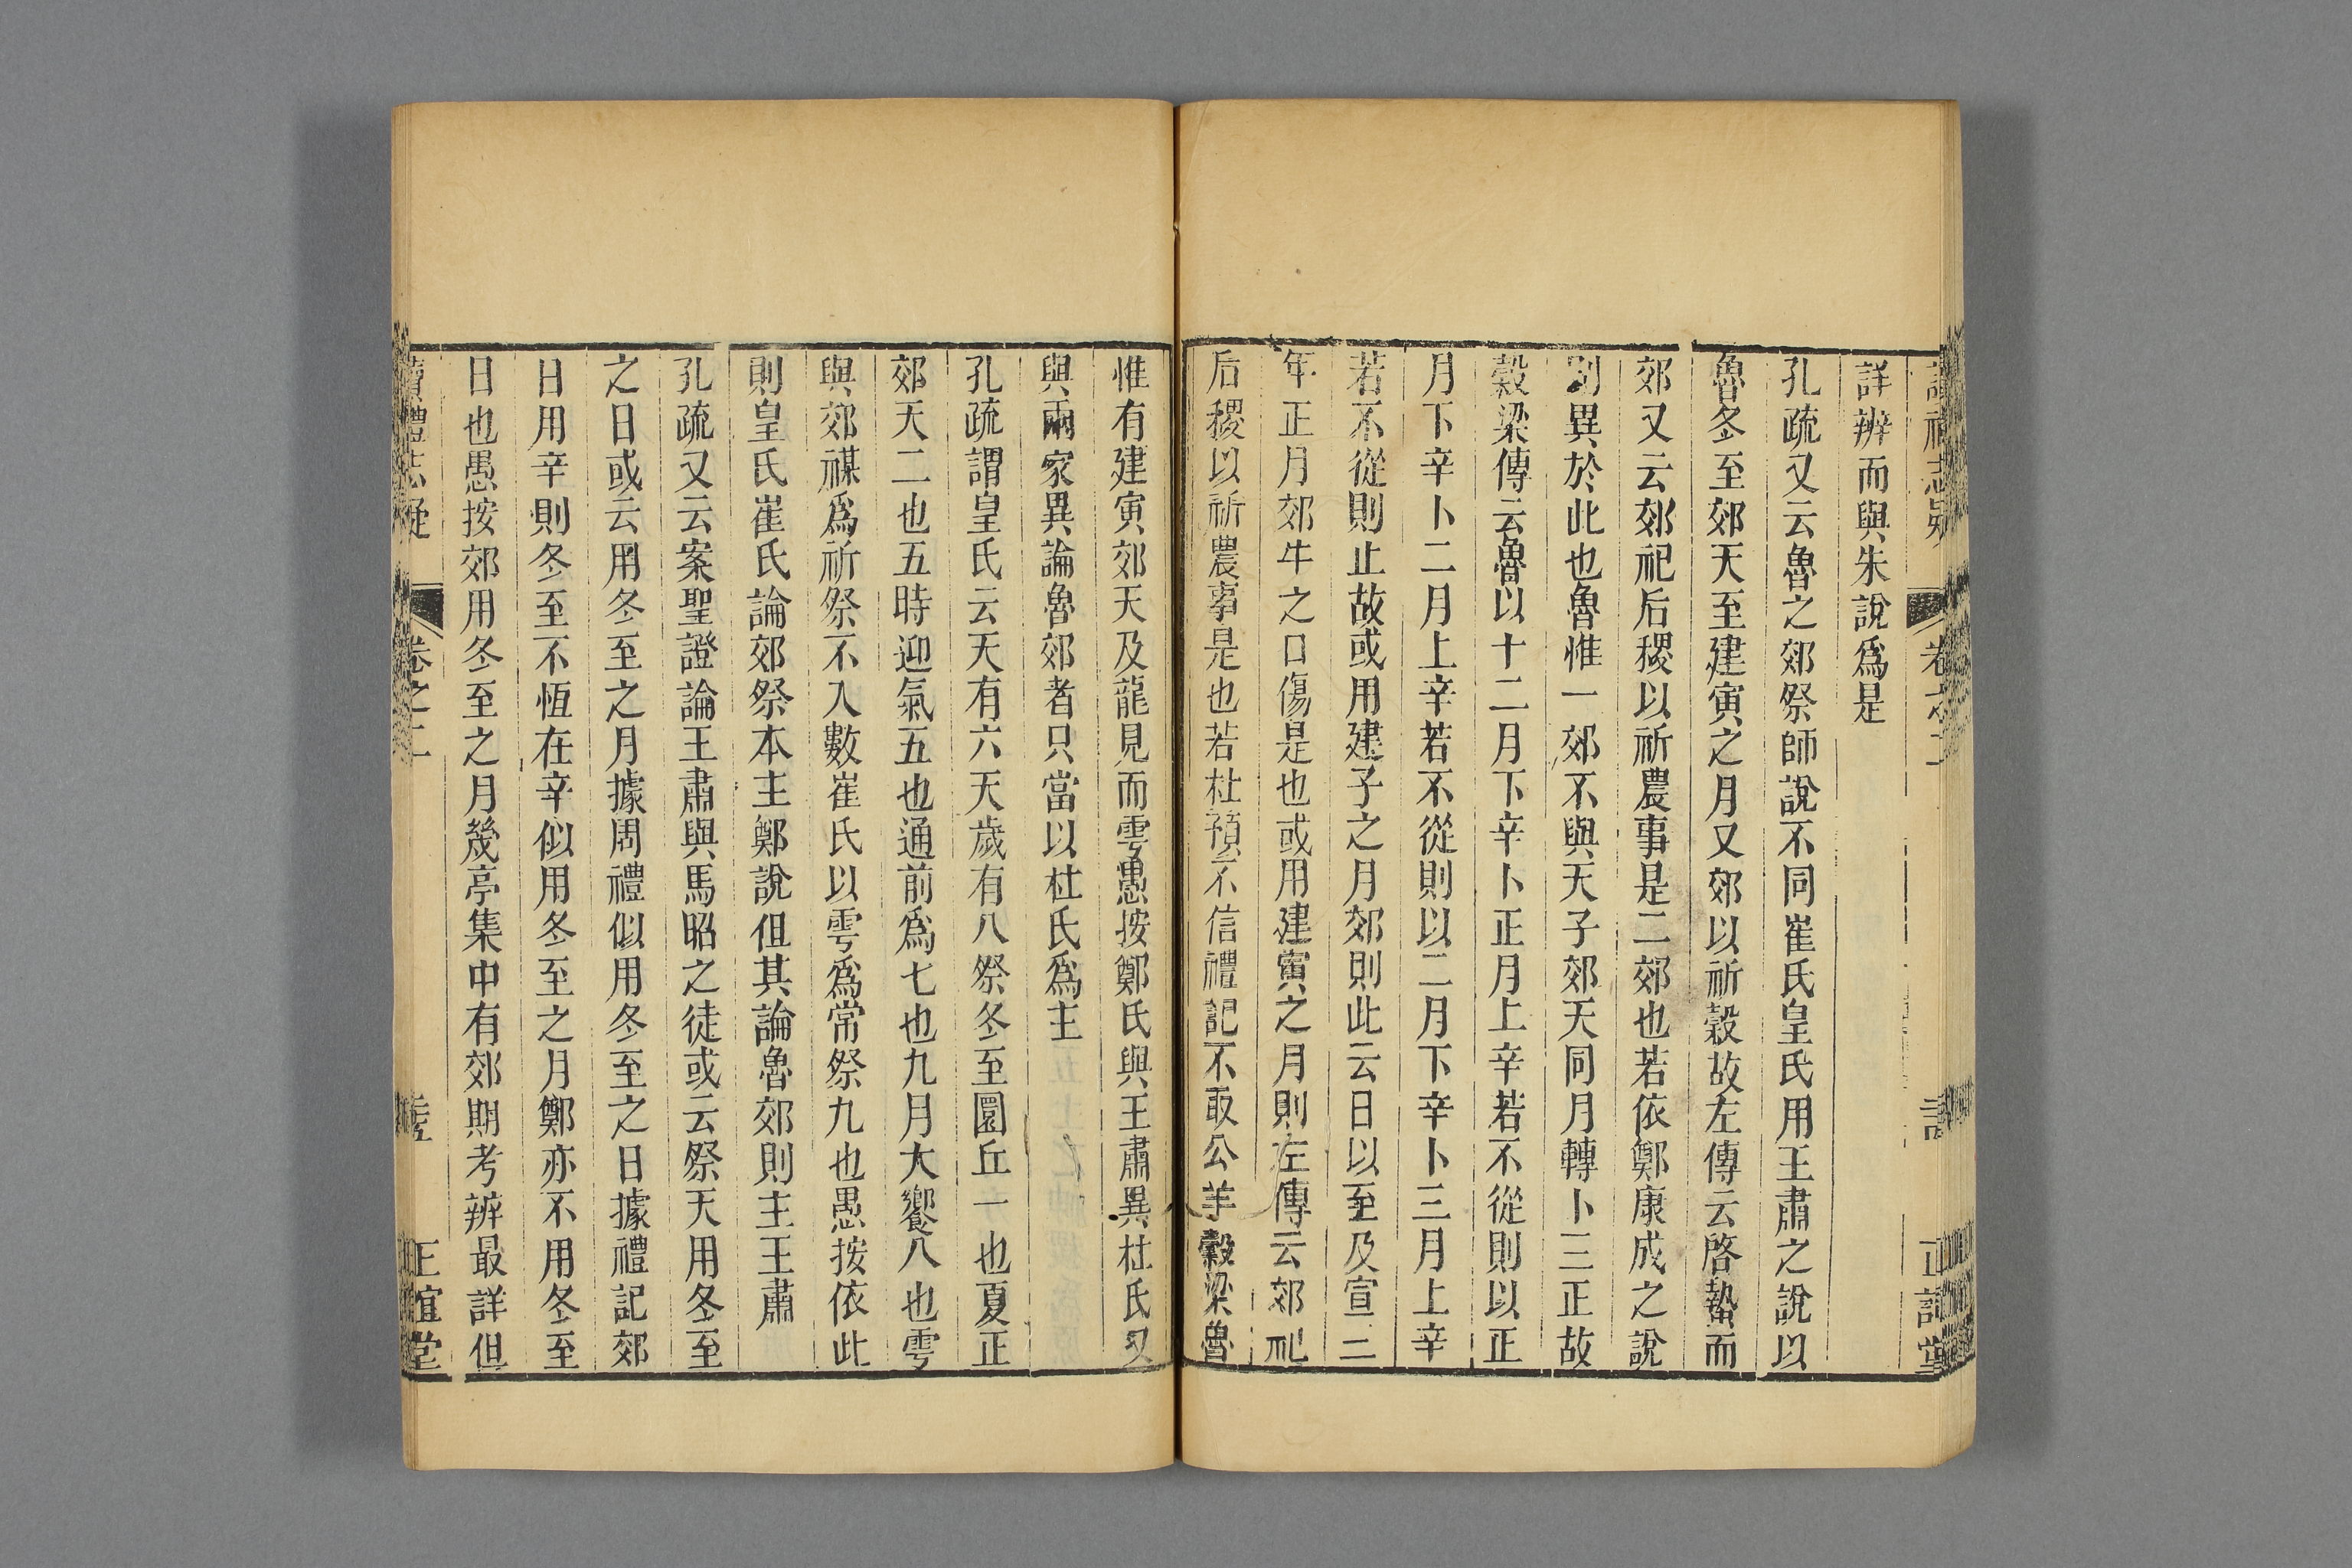 詳辨而與朱說爲是
孔疏又云魯之郊祭師說不同崔氏皇氏用王肅之說以
魯冬至郊天至建寅之月又郊以祈穀故左傳云啓蟄而
郊又云郊祀后稷以祈農事是二郊也若依鄭康成之說
則異於此也魯惟一郊不與天子郊天同月轉卜三正故
穀梁傳云魯以十二月下辛卜正月上辛若不從則以正
月下辛卜二月上辛若不從則以二月下辛卜三月上辛
若不從則止故或用建子之月郊則此云日以至及宣三
年正月郊牛之口傷是也或用建寅之月則左傳云郊祀
后稷以祈農事是也若杜預不信禮記不取公羊穀梁魯
惟有建寅郊天及龍見而雩愚按鄭氏與王肅異杜氏又
與兩家異論魯郊者只當以杜氏爲主
孔疏謂皇氏云天有六天歲有八祭冬至圜丘一也夏正
郊天二也五時迎氣五也通前爲七也九月大饗八也雩
與郊禖爲祈祭不入數崔氏以雩爲常祭九也愚按依此
則皇氏崔氏論郊祭本主鄭說但其論魯郊則主王肅
孔疏又云案聖證論王肅與馬昭之徒或云祭天用冬至
之日或云用冬至之月據周禮似用冬至之日據禮記郊
日用辛則冬至不恆在辛似用冬至之月鄭亦不用冬至
日也愚按郊用冬至之月幾亭集中有郊期考辨最詳但
讀禮志疑 卷之二 正誼堂